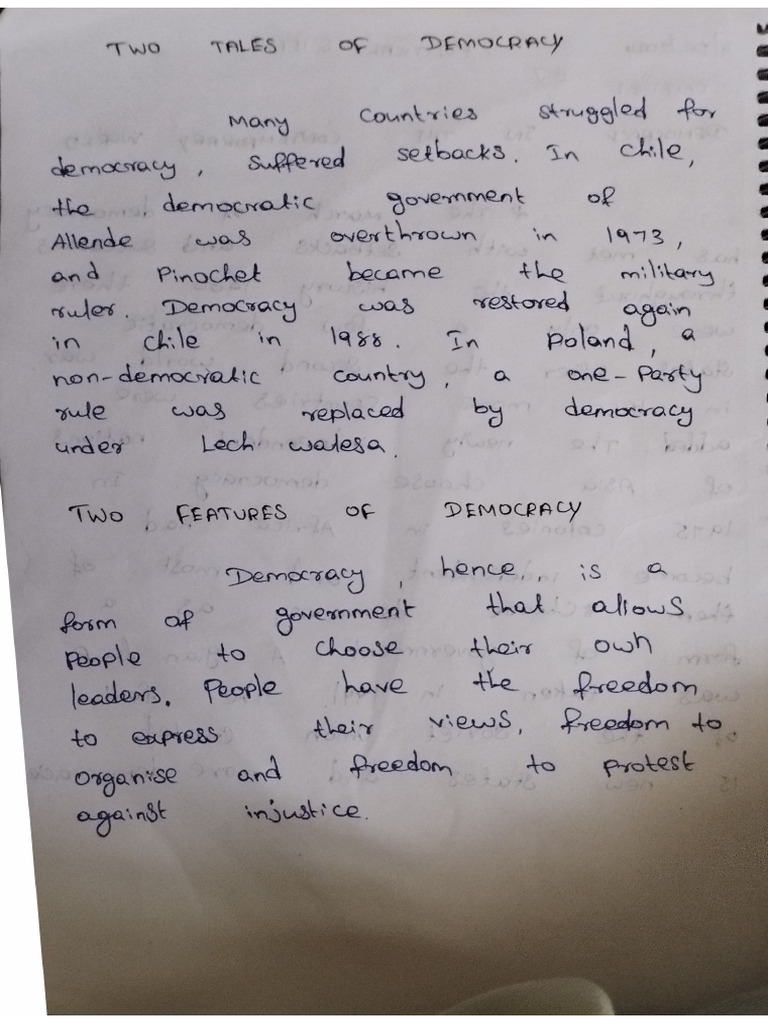 TWO TALES OF DEMOCRACY
Many Countries struggled for
democracy, suffered setbacks. In Chile,
the democratic government of
Allende was overthrown in 1973,
and Pinochet became the military
ruler. Democracy was restored again
in Chile in 1988. In Poland, a
non-democratic country, a one-Party
rule was replaced by democracy
under Lech walesa.
TWO FEATURES OF DEMOCRACY
Democracy, hence, is a
form of government that allows
People to choose their own
leaders. People have the freedom
to express their views, freedom to
organise and freedom to protest
against injustice.